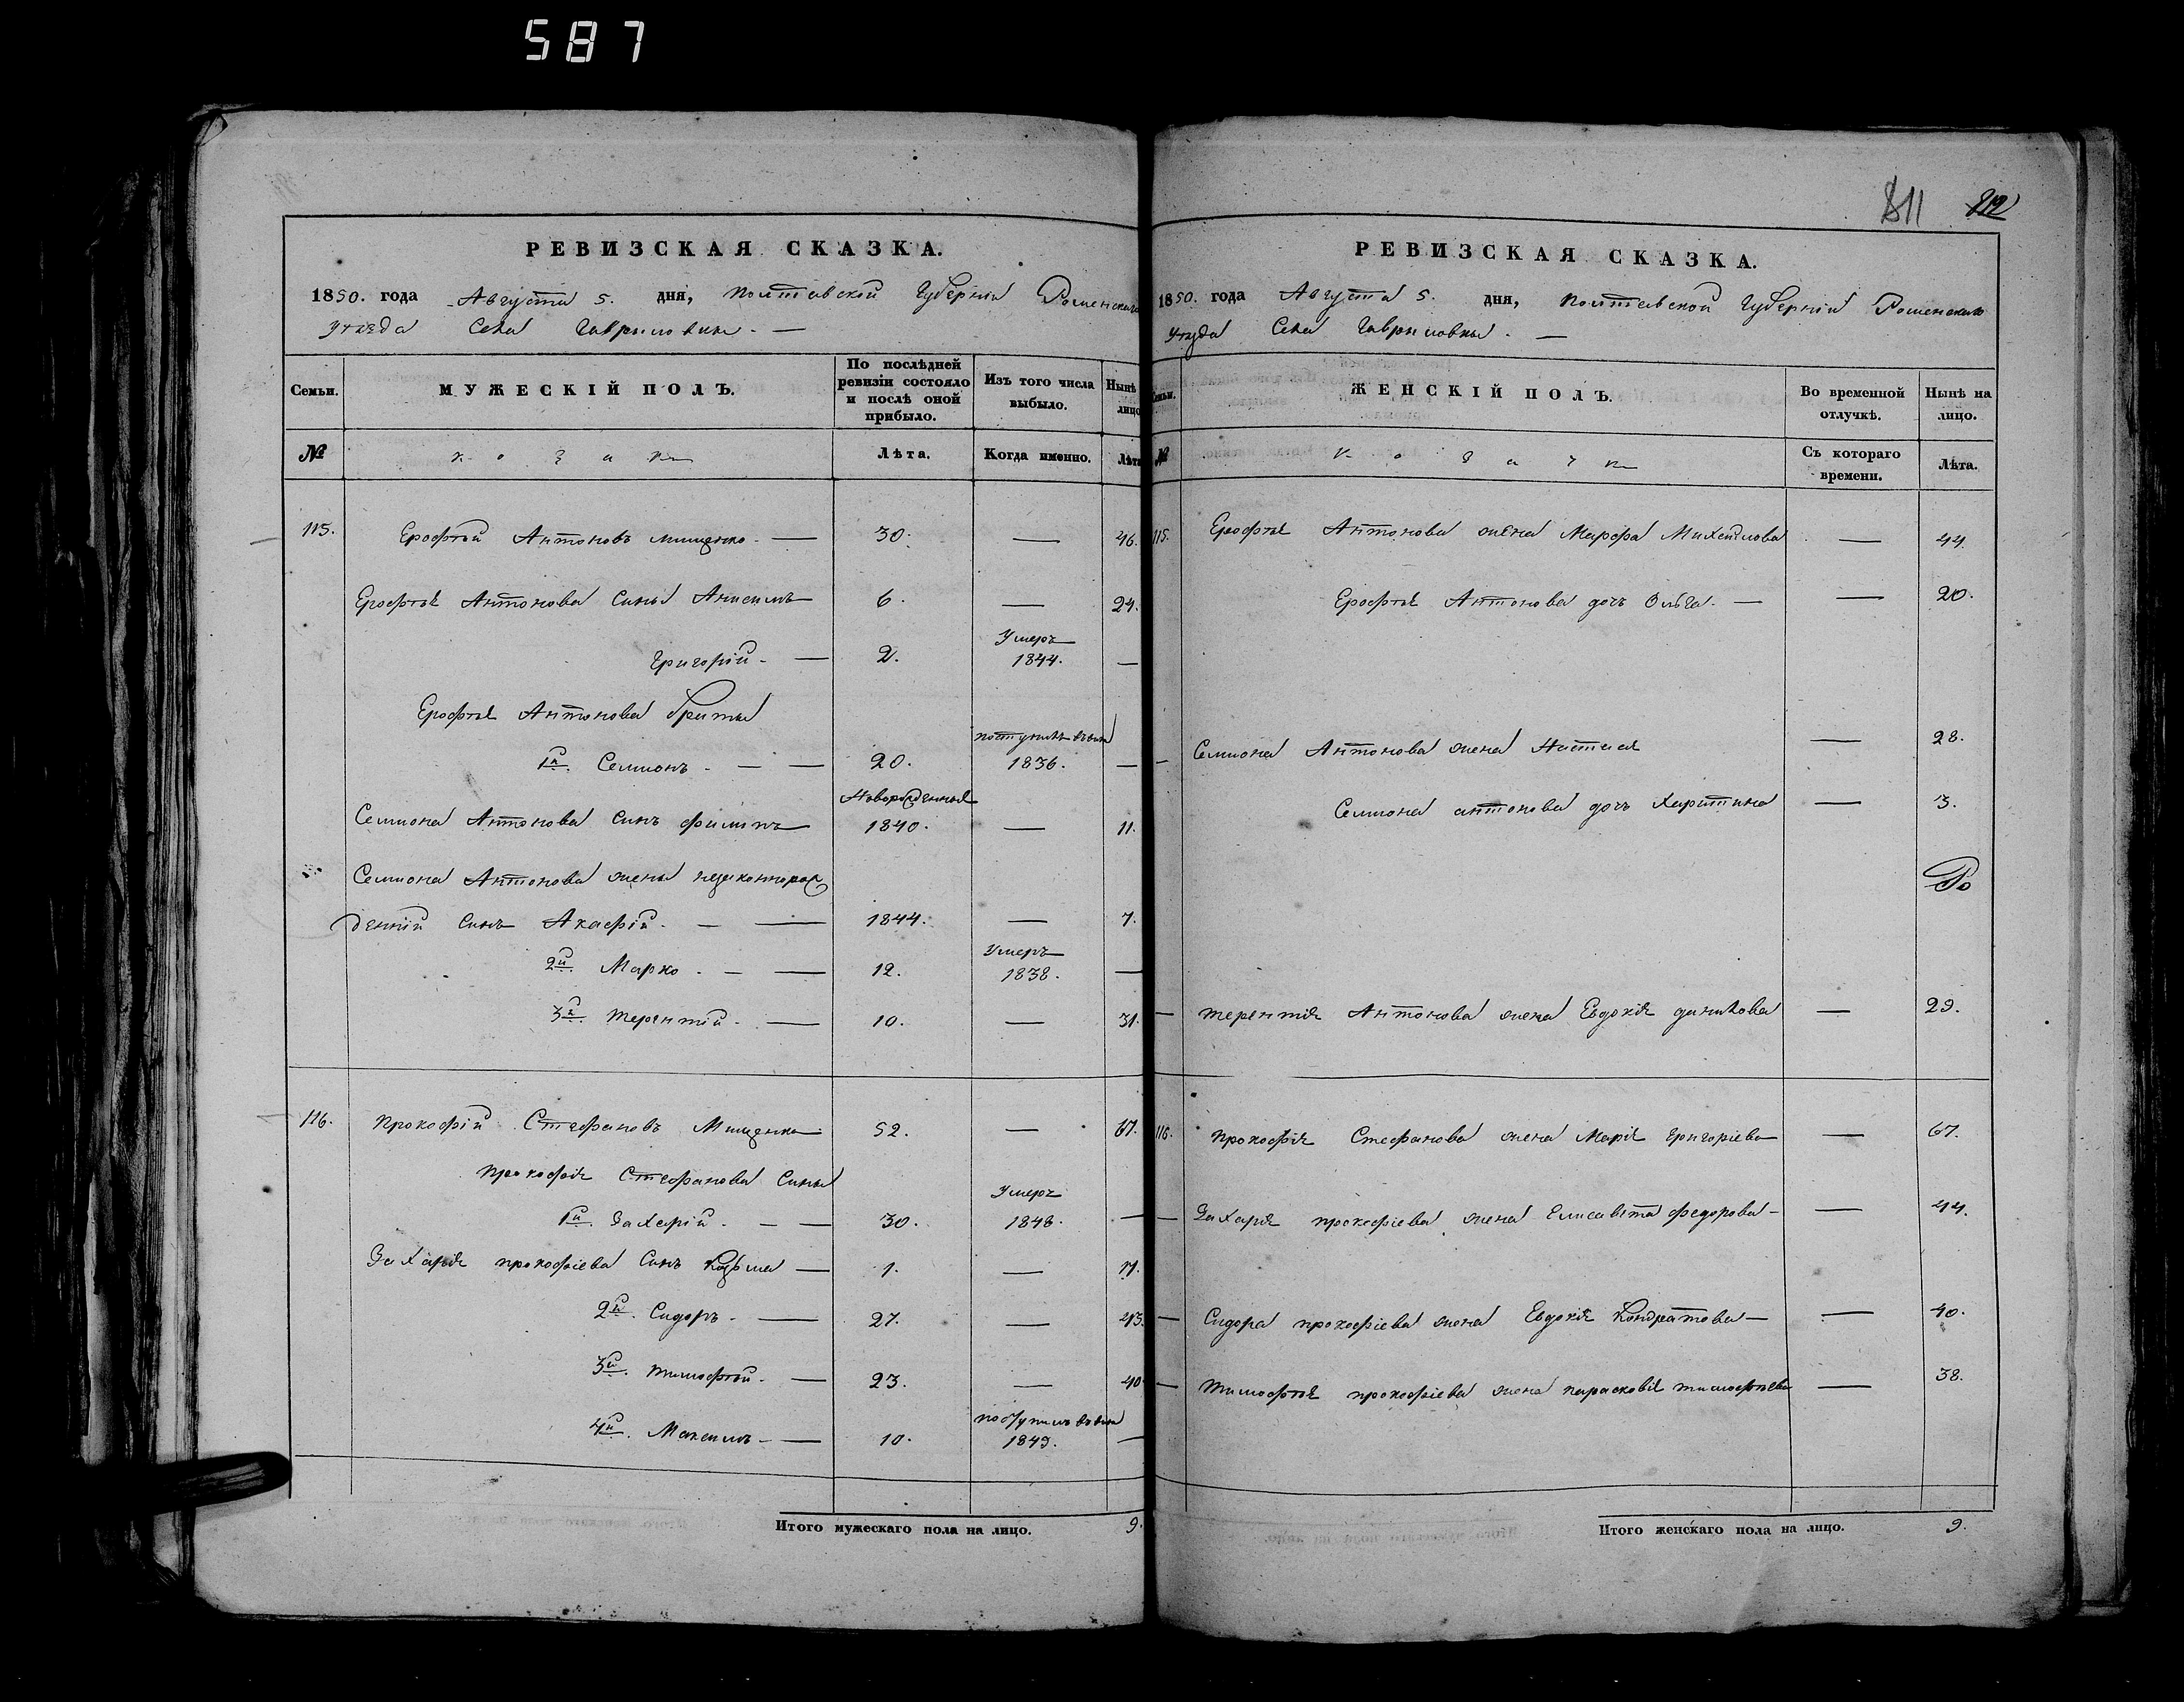 587
811 812
РЕВИЗСКАЯ СКАЗКА.
1850. года Августа 5. дня, Полтавской Губерніи Роменскаго
уезда Села Гаврыловки. —
Семьи. МУЖЕСКІЙ ПОЛЪ. По послѣдней ревизіи состояло и послѣ оной прибыло. Изъ того числа выбыло. Нынѣ лицо
№ козаки Лѣта. Когда именно. Лѣта
115. Ерофѣй Антоновъ Мищенко. — 30. — 46.
Ерофѣя Антонова сыны Анисимъ 6. — 24.
Григорій. — 2. Умеръ 1844. —
Ерофѣя Антонова браты
1й. Семионъ. — — 20. 1836. —
Семиона Антонова сынъ Филипъ Новорожденный 1840. — 11.
Семиона Антонова жены незаконнорож
денній сынъ Акафій. — — 1844. — 7.
2й. Марко. — — 12. Умеръ 1838. —
3й. Терентій. — 10. — 31.
116. Прокофій Стефановъ Мищенко 52. — 67.
Прокофія Стефанова сыны
1й. Захарій. — — 30. Умеръ 1848. —
Захарія Прокофіева сынъ Козьма — 1. — 17.
2й. Сидоръ. — 27. — 43.
3й. Тимофѣй. — 23. — 40
4й. Максимъ — — 10. 1849. —
Итого мужескаго пола на лицо. 9.
РЕВИЗСКАЯ СКАЗКА.
1850. года Августа 5. дня, Полтавской Губерніи Роменскаго
уезда Села Гаврыловки. —
Семьи. ЖЕНСКІЙ ПОЛЪ. Во временной отлучкѣ. Нынѣ на лицо.
№ козачки Съ котораго времени. Лѣта.
115. Ерофѣя Антонова жена Марфа Михайлова — 44.
Ерофѣя Антонова дочь Ольга. — — 20.
— Семиона Антонова жена Настасія — 28.
Семиона Антонова дочь Харитина — 3.
— Терентія Антонова жена Евдокія Данилова — 29.
116. Прокофія Стефанова жена Марія Григоріева — 67.
— Захарія Прокофіева жена Елисавета Федорова — — 44.
— Сидора Прокофіева жена Евдокія Кондратова — — 40.
— Тимофѣя Прокофіева жена Парасковія Тимофѣева — 38.
Итого женскаго пола на лицо. 9.